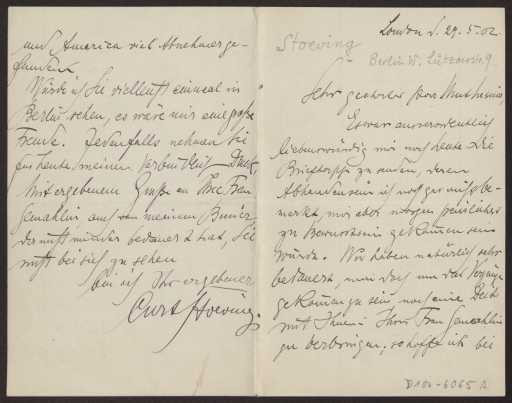 London d. 29. 5. 02
Stoeving
Berlin W. Lützowstr. 9
Sehr geehrter Herr Muthesius,
Es war ausserordentlich
liebenswürdig mir noch heute die
Brieftasche zu senden, deren
Abhandensein ich noch gar nicht be-
merkt, mir aber morgen peinlicher
zu Bewusstsein gekommen sein
würde. Wir haben natürlich sehr
bedauert, um das Vergnügen
gekommen zu sein, noch eine
mit Ihnen Ihrer Frau Gemahlin
zu verbringen, so hoffe ich bei
D102-6065 a
und America viel Abnehmer ge-
funden.
Würde ich Sie vielleicht einmal in
Berlin sehen, es wäre mir eine große
Freude. Jedenfalls nehmen Sie
für heute meinen verbindlich Dank.
Mit ergebenem Gruße an Ihre Frau
Gemahlin auch von meinem Bruder,
der nicht minder bedauert hat, Sie
nicht bei sich zu sehen
bin ich Ihr ergebener
Curt Stoeving.